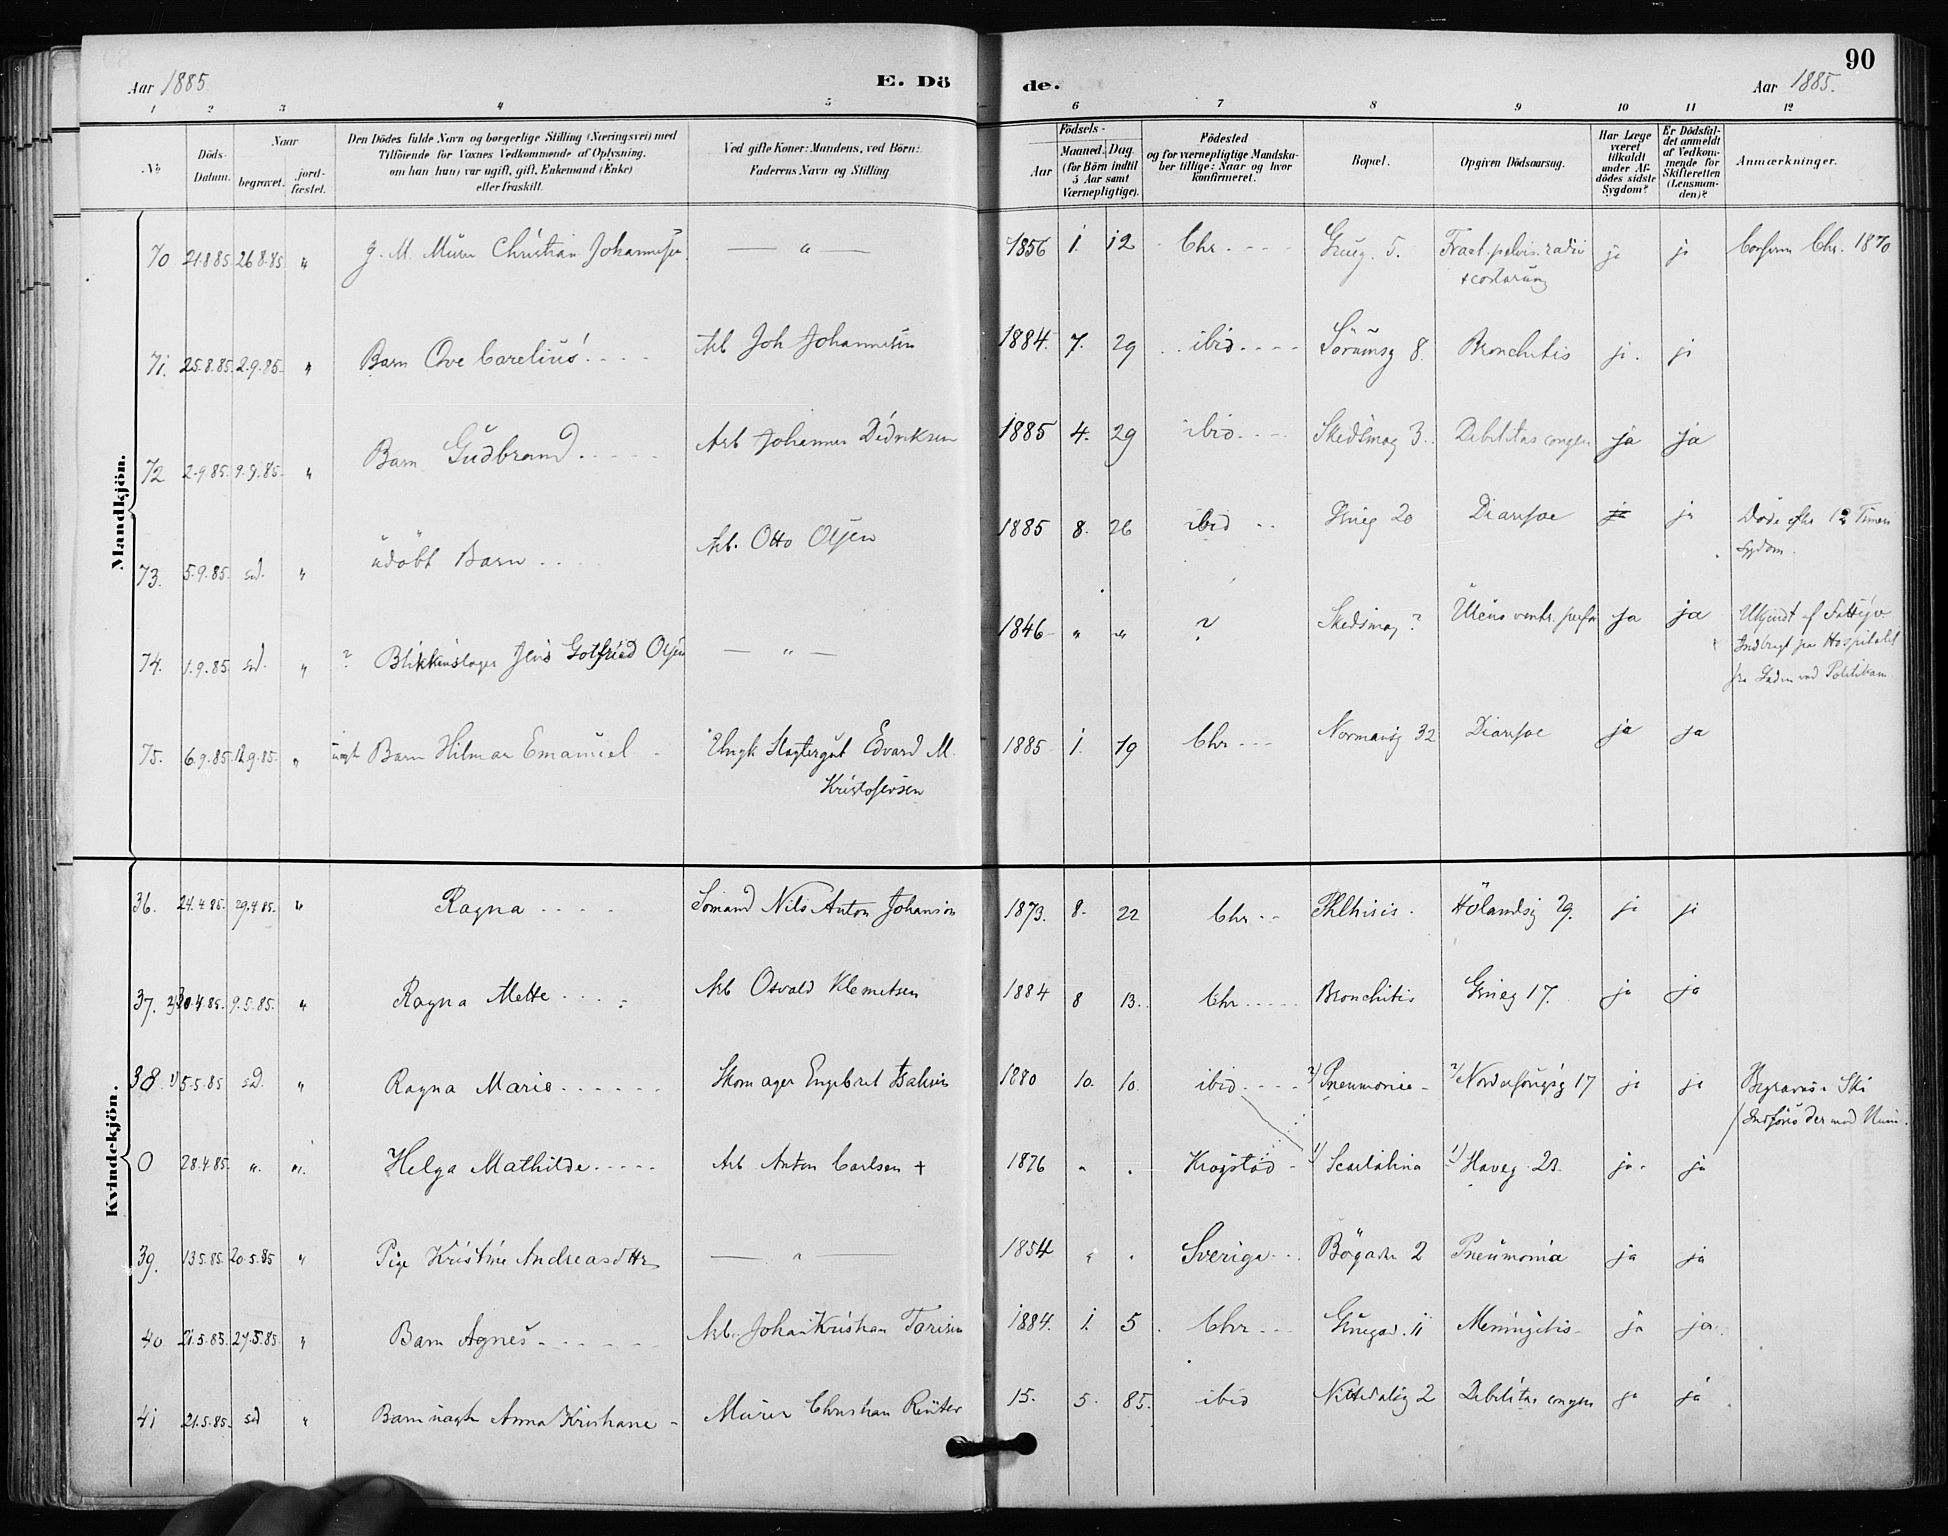 90
Aar 1885
E. Dö
de.
Aar 1885.
1 2 3 4 5 6 7 8 9 10 11 12
No
Döds-Datum.
Naar
begravet.
jord-fæstet.
Den Dödes fulde Navn og borgerlige Stilling (Næringsvei) med
Tilföiende for Voxnes Vedkommende af Oplysning.
om han (hun) var ugift, gift, Enkemand (Enke)
eller fraskilt.
Ved gifte Koner: Mandens, ved Börn:
Faderens Navn og Stilling.
Födsels-
Aar
Maaned. Dag.
(for Börn indtil
5 Aar samt
Værnepligtige).
Födested
og for værnepligtige Mandska-
ber tillige: Naar og hvor
konfirmeret.
Bopæl.
Opgiven Dödsaarsag.
Har Læge
været
tilkaldt
under Af-
dödes sidste
Sygdom?
Er Dödsfal-
det anmeldt
af Vedkom-
mende for
Skifteretten
(Lensman-
den)?
Anmærkninger.
Mandkjön.
70 21.8.85 26.8.85 " g. M. Murer Christian Johannesen — " — 1856 1. 12 Chr. Grueg. 5. Fract. pelvis. radii ja ja Chr. 1870
+ costarum
71. 25.8.85. 2.9.85. " Barn Ove Carelius Arb Joh Johannesen 1884. 7. 29 ibid Sörumsg 8. Bronchitis ja. ja
72 2.9.85. 9.9.85. " Barn Gudbrand Arb Johannes Didriksen 1885 4. 29 ibid Skedsmog 3. Debilitas congen ja ja
73. 5.9.85. sd. " udöbt Barn Arb. Otto Olsen 1885 8. 26 ibid Grueg 20 Diarrhoe ja ja Döde efter 12 Timers
Sygdom.
74. 1.9.85. sd. " ? Blikkenslager Jens Gotfried Olsen — " — 1846 " " ? Skedsmog ? Ulcus ventr. perfor ja ja Ukjendt af Fattigv.
Indbragt paa Hospitalet
fra Gaden ved Politikam
75. 6.9.85. 12.9.85. " uægte Barn Hilmar Emanuel Ungk Slagtergut Edvard M. 1885 1. 19 Chr Normansg 32 Diarrhoe ja ja
Kristofersen
Kvindekjön.
36. 24.4.85. 29.4.85. " Ragna Sömand Nils Anton Johanson 1873. 8. 22 Chr Phthisis. Hölandsg 29. ja ja
37. 30.4.85. 9.5.85. " Ragna Mette Arb Osvald Klemetsen 1884 8 13. Chr Bronchitis Grueg 17. ja ja
38. 5.5.85 sd. " Ragna Marie Skomager Engebret Isaksen 1880 10. 10. ibid 2) Pneumonie 2) Nordahlbrunsg 17 ja ja Begraves i Ski
Indföres der med Num.
0 28.4.85. ". ". Helga Mathilde Arb Anton Carlsen + 1876 " " Krogstad 1) Scarlatina 1) Haveg. 2 ja. ja
39. 13.5.85. 20.5.85 " Pige Kristine Andreasdttr — " — 1854 " " Sverige Bögaden 2 Pneumonia ja ja
40 21.5.85. 27.5.85 " Barn Agnes Arb. Johan Kristian Torisen 1884. 1. 5. Chr Gruegad. 11 Meningitis ja ja.
41 21.5.85. sd " Barn uægte Anna Kristiane Murer Christian Reuter 15. 5. 85. ibid Nittedalsg 2 Debilitas congen ja ja